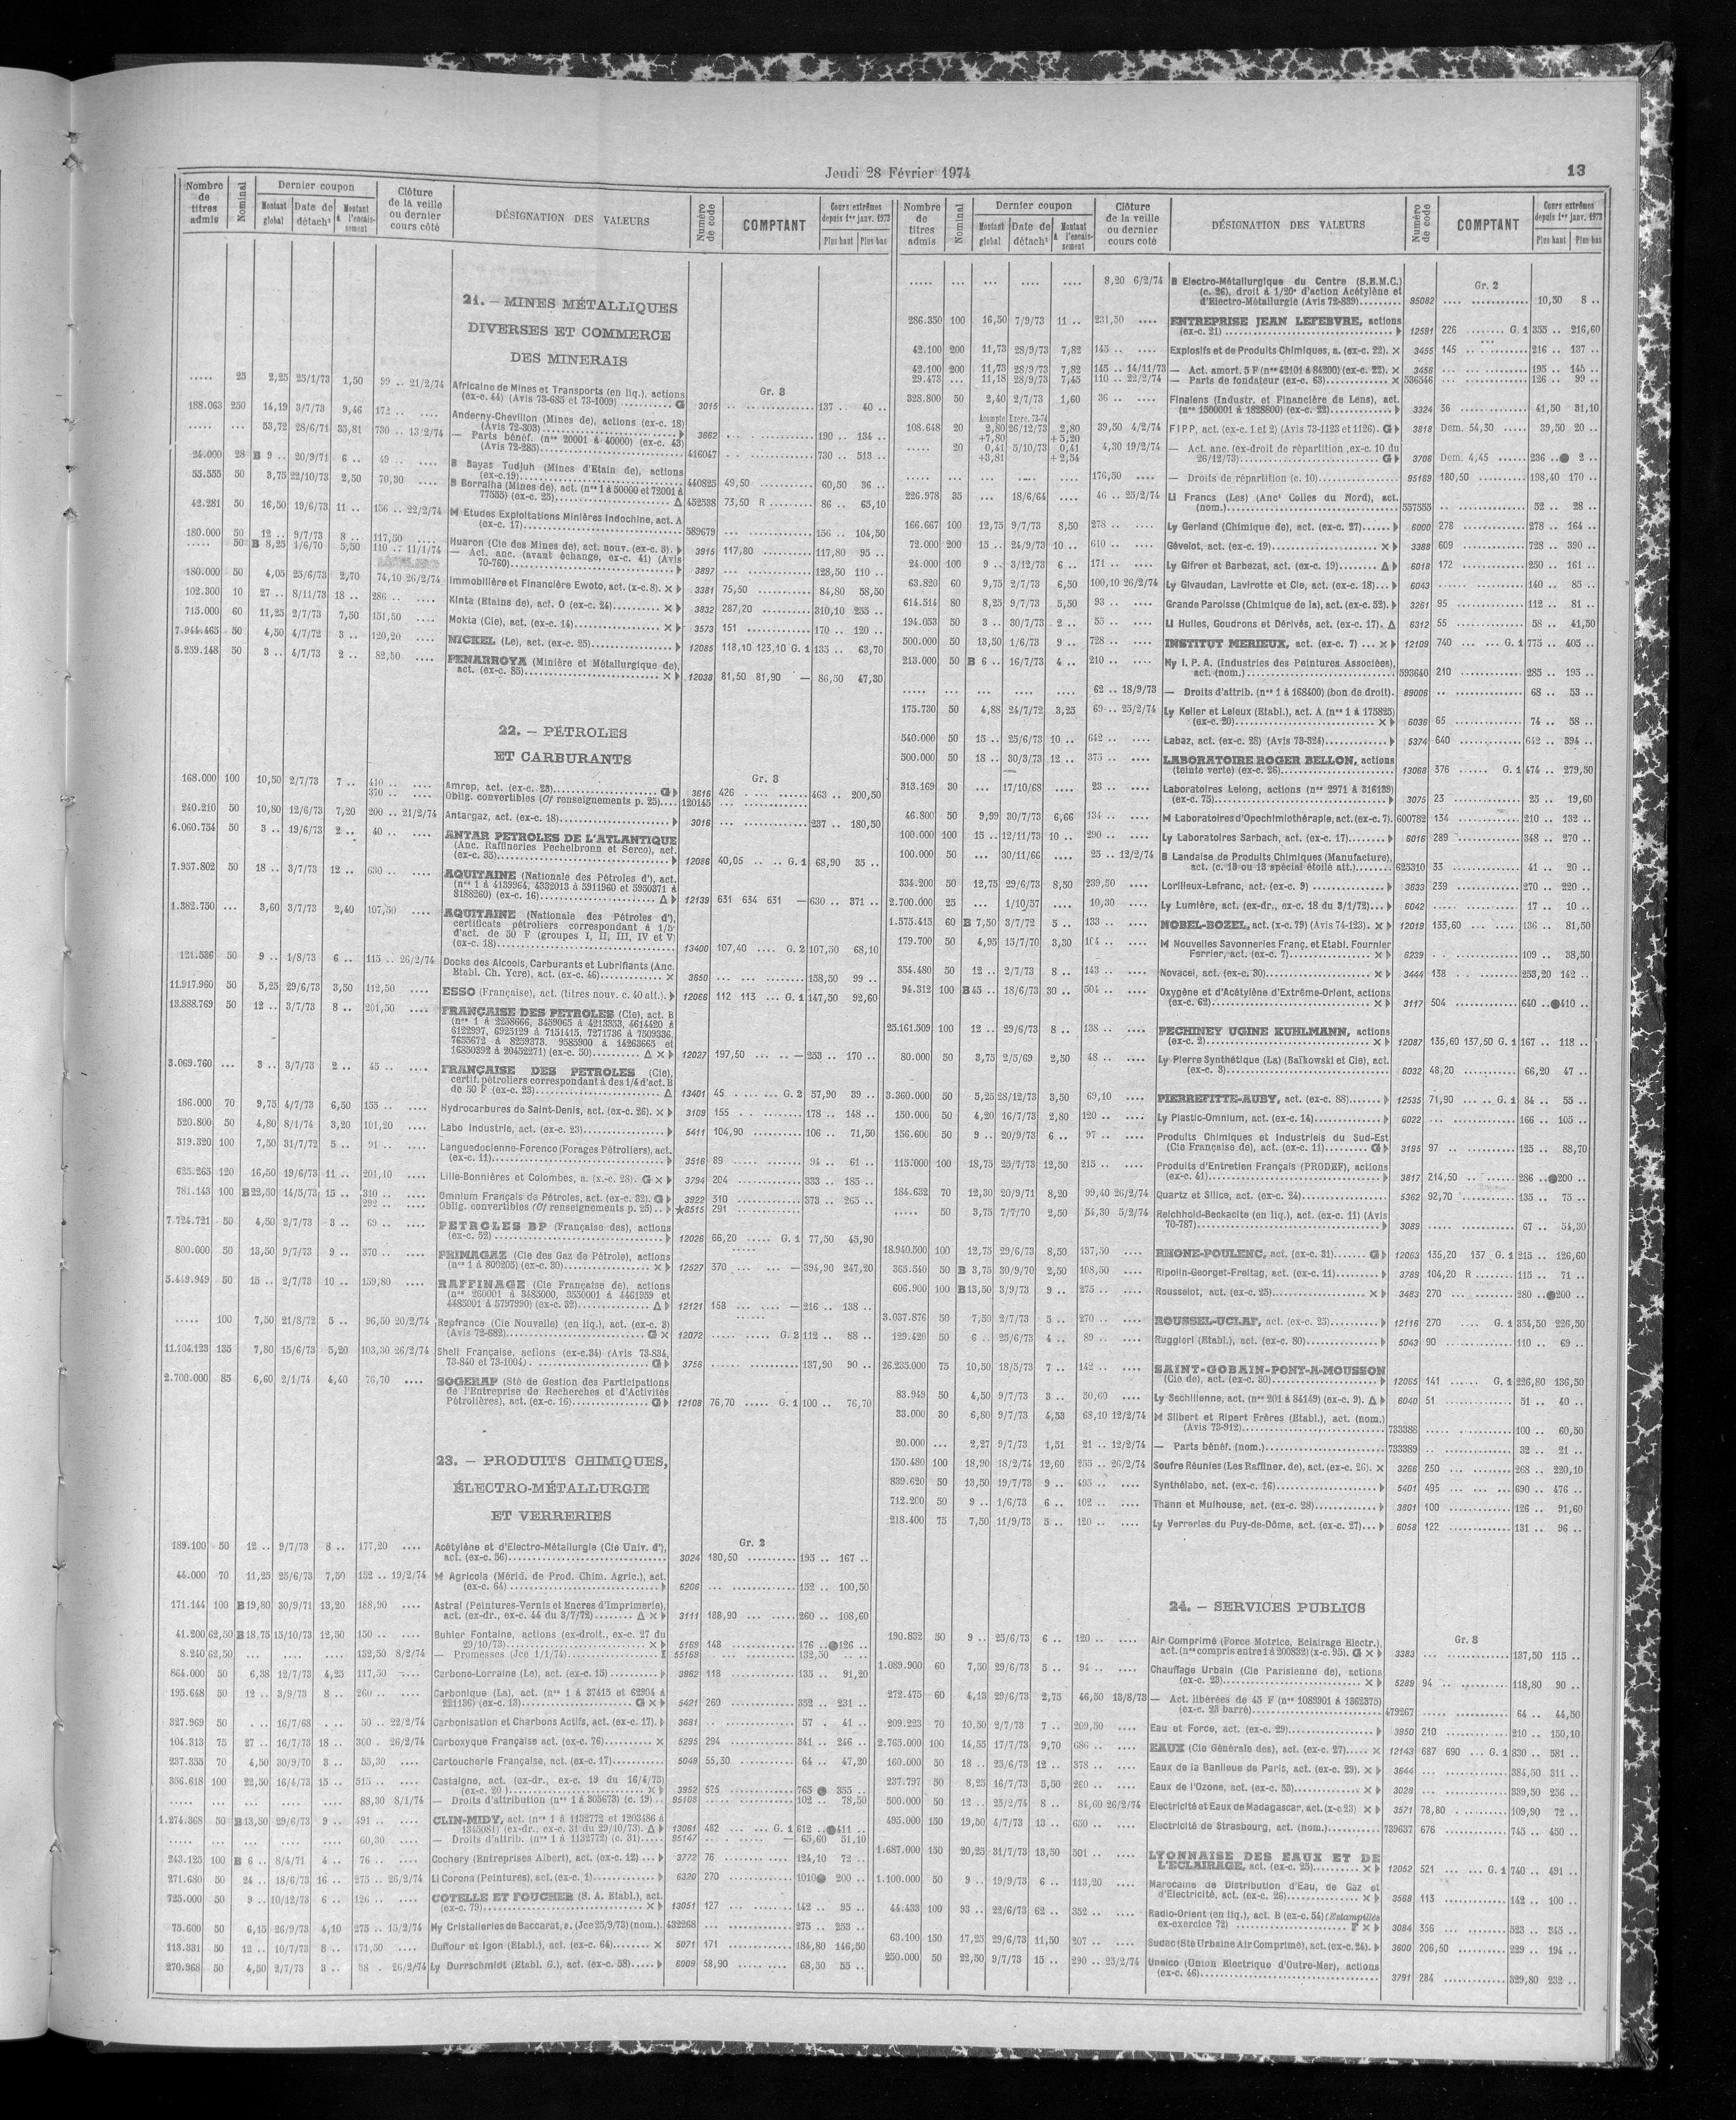 Jeudi 28 Février 1974
13
Nombre de titres admis | Nominal | Dernier coupon | Montant global | Date de détacht | Montant à l'encaissement | Clôture de la veille ou dernier cours coté | DÉSIGNATION DES VALEURS | Numéro de code | COMPTANT | Cours extrêmes depuis 1er janv. 1973 | Plus haut | Plus bas
21. — MINES MÉTALLIQUES
DIVERSES ET COMMERCE
DES MINERAIS
Gr. 3
..... 25 2,25 25/1/73 1,50 99 .. 21/2/74 Africaine de Mines et Transports (en liq.), actions
(ex-c. 44) (Avis 73-685 et 73-1009) G 3015 137 .. 40 ..
188.063 250 14,19 3/7/73 9,46 172 .. .... Anderny-Chevillon (Mines de), actions (ex-c. 18)
(Avis 72-303) 3662 190 .. 134 ..
..... ... 53,72 28/6/71 35,81 730 .. 13/2/74 — Parts bénéf. (nos 20001 à 40000) (ex-c. 43)
(Avis 72-285) 416047 730 .. 513 ..
24.000 28 B 9 .. 20/9/71 6 .. 49 .. .... B Bayas Tudjuh (Mines d'Etain de), actions
(ex-c.19) 440825 49,50 60,50 36 ..
55.555 50 3,75 22/10/73 2,50 70,30 .... B Borralha (Mines de), act. (nos 1 à 50000 et 72001 à
77555) (ex-c. 25) Δ 452538 73,50 R 86 .. 65,10
42.281 50 16,50 19/6/73 11 .. 156 .. 22/2/74 M Etudes Exploitations Minières Indochine, act. A
(ex-c. 17) 589679 156 .. 104,50
180.000 50 12 .. 9/7/73 8 .. 117,50 .... Huaron (Cie des Mines de), act. nouv. (ex-c. 3). 3915 117,80 117,80 95 ..
..... 50 B 8,25 1/6/70 5,50 110 .. 11/1/74 — Act. anc. (avant échange, ex-c. 41) (Avis
70-760) 3897 128,50 110 ..
180.000 50 4,05 25/6/73 2,70 74,10 26/2/74 Immobilière et Financière Ewoto, act. (x-c.8). × 3381 75,50 84,80 58,50
102.300 10 27 .. 8/11/73 18 .. 286 .. .... Kinta (Etains de), act. O (ex-c. 24) × 3832 287,20 310,10 255 ..
715.000 60 11,25 2/7/73 7,50 151,50 .... Mokta (Cie), act. (ex-c. 14) × 3573 151 170 .. 120 ..
7.944.465 50 4,50 4/7/72 3 .. 120,20 .... NICKEL (Le), act. (ex-c. 25) 12085 118,10 123,10 G. 1 135 .. 63,70
5.259.148 50 3 .. 4/7/73 2 .. 82,50 .... PENARROYA (Minière et Métallurgique de),
act. (ex-c. 85) × 12038 81,50 81,90 — 86,50 47,30
22. — PÉTROLES
ET CARBURANTS
Gr. 3
168.000 100 10,50 2/7/73 7 .. 410 .. .... Amrep, act. (ex-c. 23) G 3616 426 463 .. 200,50
370 .. .... Oblig. convertibles (Cf renseignements p. 25) 120145
240.210 50 10,80 12/6/73 7,20 200 .. 21/2/74 Antargaz, act. (ex-c. 18) 3016 237 .. 180,50
6.060.754 50 3 .. 19/6/73 2 .. 40 .. .... ANTAR PETROLES DE L'ATLANTIQUE
(Anc. Raffineries Pechelbronn et Serco), act.
(ex-c. 35) 12086 40,05 G. 1 68,90 35 ..
7.957.802 50 18 .. 3/7/73 12 .. 630 .. .... AQUITAINE (Nationale des Pétroles d'), act.
(nos 1 à 4139964, 4332013 à 5911960 et 5950371 à
8188260) (ex-c. 16) Δ 12139 631 634 631 — 630 .. 371 ..
1.382.750 ... 3,60 3/7/73 2,40 107,50 .... AQUITAINE (Nationale des Pétroles d'),
certificats pétroliers correspondant à 1/5e
d'act. de 50 F (groupes I, II, III, IV et V)
(ex-c. 18) 13400 107,40 G. 2 107,50 68,10
121.536 50 9 .. 1/8/73 6 .. 115 .. 26/2/74 Docks des Alcools, Carburants et Lubrifiants (Anc.
Etabl. Ch. Ycre), act. (ex-c. 46) × 3650 158,50 99 ..
11.917.960 50 5,25 29/6/73 3,50 112,50 .... ESSO (Française), act. (titres nouv. c. 40 att.). 12066 112 113 G. 1 147,50 92,60
13.888.769 50 12 .. 3/7/73 8 .. 201,50 .... FRANÇAISE DES PETROLES (Cie), act. B
(nos 1 à 2258666, 3459065 à 4213353, 4614420 à
6122997, 6925129 à 7151415, 7271736 à 7509336,
7635672 à 8259373, 9585900 à 14263665 et
16850392 à 20452271) (ex-c. 50) Δ × 12027 197,50 — 253 .. 170 ..
3.069.760 ... 3 .. 3/7/73 2 .. 45 .. .... FRANÇAISE DES PETROLES (Cie),
certif. pétroliers correspondant à des 1/4 d'act. B
de 50 F (ex-c. 23) Δ 13401 45 G. 2 57,90 39 ..
186.000 70 9,75 4/7/73 6,50 155 .. .... Hydrocarbures de Saint-Denis, act. (ex-c. 26). × 3109 155 178 .. 148 ..
520.800 50 4,80 8/1/74 3,20 101,20 .... Labo Industrie, act. (ex-c. 23) 5411 104,90 106 .. 71,50
319.320 100 7,50 31/7/72 5 .. 91 .. .... Languedocienne-Forenco (Forages Pétroliers), act.
(ex-c. 11) 3516 89 94 .. 61 ..
625.265 120 16,50 19/6/73 11 .. 201,10 .... Lille-Bonnières et Colombes, a. (x.-c. 28). G × 3794 204 333 .. 185 ..
781.143 100 B 22,50 14/5/73 15 .. 310 .. .... Omnium Français de Pétroles, act. (ex-c. 32). G 3922 310 373 .. 265 ..
292 .. .... Oblig. convertibles (Cf renseignements p. 25) ★8515 291
7.724.721 50 4,50 2/7/73 3 .. 69 .. .... PETROLES BP (Française des), actions
(ex-c. 52) 12026 66,20 G. 1 77,50 45,90
800.000 50 13,50 9/7/73 9 .. 370 .. .... PRIMAGAZ (Cie des Gaz de Pétrole), actions
(nos 1 à 800205) (ex-c. 30) × 12527 370 — 394,90 247,20
5.449.949 50 15 .. 2/7/73 10 .. 159,80 .... RAFFINAGE (Cie Française de), actions
(nos 260001 à 3485000, 3550001 à 4461959 et
4485001 à 5797990) (ex-c. 32) Δ 12121 158 — 216 .. 138 ..
..... 100 7,50 21/8/72 5 .. 96,50 20/2/74 Repfrance (Cie Nouvelle) (en liq.), act. (ex-c. 3)
(Avis 72-682) G × 12072 G. 2 112 .. 88 ..
11.104.123 135 7,80 15/6/73 5,20 103,30 26/2/74 Shell Française, actions (ex-c.34) (Avis 73-834,
73-840 et 73-1004) G 3756 137,90 90 ..
2.700.000 85 6,60 2/1/74 4,40 76,70 .... SOGERAP (Sté de Gestion des Participations
de l'Entreprise de Recherches et d'Activités
Pétrolières), act. (ex-c. 16) G 12108 76,70 G. 1 100 .. 76,70
23. — PRODUITS CHIMIQUES,
ÉLECTRO-MÉTALLURGIE
ET VERRERIES
Gr. 2
189.100 50 12 .. 9/7/73 8 .. 177,20 .... Acétylène et d'Electro-Métallurgie (Cie Univ. d'),
act. (ex-c. 56) 3024 180,50 195 .. 167 ..
44.000 70 11,25 25/6/73 7,50 152 .. 19/2/74 M Agricola (Mérid. de Prod. Chim. Agric.), act.
(ex-c. 64) 6206 152 .. 100,50
171.144 100 B 19,80 30/9/71 13,20 188,90 .... Astral (Peintures-Vernis et Encres d'Imprimerie),
act. (ex-dr., ex-c. 44 du 3/7/72) Δ × 3111 188,90 260 .. 108,60
41.200 62,50 B 18,75 15/10/73 12,50 150 .. .... Buhler Fontaine, actions (ex-droit., ex-c. 27 du
29/10/73) × 5169 148 176 .. ●126 ..
8.240 62,50 ... .... .... 132,50 8/2/74 — Promesses (Jce 1/1/74) I 55169 132,50 ..
864.000 50 6,38 12/7/73 4,25 117,50 .... Carbone-Lorraine (Le), act. (ex-c. 15) 3962 118 135 .. 91,20
195.648 50 12 .. 3/9/73 8 .. 260 .. .... Carbonique (La), act. (nos 1 à 37415 et 62904 à
221136) (ex-c. 13) G × 5421 260 352 .. 231 ..
327.969 50 ... 16/7/68 ... 50 .. 22/2/74 Carbonisation et Charbons Actifs, act. (ex-c. 17). 3681 57 . 41 ..
104.313 75 27 .. 16/7/73 18 .. 300 . 26/2/74 Carboxyque Française act. (ex-c. 76) × 5295 294 341 .. 246 ..
237.355 70 4,50 30/9/70 3 .. 55,30 .... Cartoucherie Française, act. (ex-c. 17) 5049 55,30 64 .. 47,20
356.618 100 22,50 16/4/73 15 .. 515 .. .... Castaigne, act. (ex-dr., ex-c. 19 du 16/4/73)
(ex-c. 20) × 3952 525 765 ● 355 ..
..... ... .... .... .... 88,30 8/1/74 — Droits d'attribution (nos 1 à 305673) (c. 19) 95108 102 .. 78,50
1.274.368 50 B 13,50 29/6/73 9 .. 491 .. .... CLIN-MIDY, act. (nos 1 à 1132772 et 1203486 à
1345081) (ex-dr., ex-c. 31 du 29/10/73). Δ 13061 482 G. 1 612 .. ●411 ..
..... ... .... .... .... 60,30 .... — Droits d'attrib. (nos 1 à 1132772) (c. 31) 95147 — 65,60 51,10
243.125 100 B 6 .. 8/4/71 4 .. 76 .. .... Cochery (Entreprises Albert), act. (ex-c. 12) 3772 76 124,10 72 ..
271.680 50 24 .. 18/6/73 16 .. 275 .. 26/2/74 Ll Corona (Peintures), act. (ex-c. 1) 6320 270 1010● 200 ..
725.000 50 9 .. 10/12/73 6 .. 126 .. .... COTELLE ET FOUCHER (S. A. Etabl.), act.
(ex-c. 79) × 13051 127 142 .. 95 ..
75.600 50 6,15 26/9/73 4,10 275 .. 15/2/74 My Cristalleries de Baccarat, a. (Jce 25/9/73) (nom.). 432268 275 .. 253 ..
113.331 50 12 .. 10/7/73 8 .. 171,50 .... Duffour et Igon (Etabl.), act. (ex-c. 64) × 5071 171 184,80 146,50
270.968 50 4,50 2/7/73 3 .. 58 . 26/2/74 Ly Durrschmidt (Etabl. G.), act. (ex-c. 58) 6009 58,90 68,50 55 ..
Nombre de titres admis | Nominal | Dernier coupon | Montant global | Date de détacht | Montant à l'encaissement | Clôture de la veille ou dernier cours coté | DÉSIGNATION DES VALEURS | Numéro de code | COMPTANT | Cours extrêmes depuis 1er janv. 1973 | Plus haut | Plus bas
Gr. 2
..... ... ... .... .... 8,20 6/2/74 B Electro-Métallurgique du Centre (S.E.M.C.)
(c. 26), droit à 1/20e d'action Acétylène et
d'Electro-Métallurgie (Avis 72-839) 95082 10,50 8 ..
286.350 100 16,50 7/9/73 11 .. 231,50 .... ENTREPRISE JEAN LEFEBVRE, actions
(ex-c. 21) 12591 226 G. 1 355 .. 216,60
42.100 200 11,73 28/9/73 7,82 145 .. .... Explosifs et de Produits Chimiques, a. (ex-c. 22). × 3455 145 216 .. 137 ..
42.100 200 11,73 28/9/73 7,82 145 .. 14/11/73 — Act. amort. 5 F (nos 42101 à 84200) (ex-c. 22). × 3456 195 .. 145 ..
29.473 ... 11,18 28/9/73 7,45 110 .. 22/2/74 — Parts de fondateur (ex-c. 63) × 536546 126 .. 99 ..
328.800 50 2,40 2/7/73 1,60 36 .. .... Finalens (Industr. et Financière de Lens), act.
(nos 1500001 à 1828800) (ex-c. 22) 3324 36 41,50 31,10
Acompte Exerc. 73-74
108.648 20 2,80 26/12/73 2,80 39,50 4/2/74 FIPP, act. (ex-c. 1 et 2) (Avis 73-1123 et 1126). G 3818 Dem. 54,30 39,50 20 ..
+7,80 +5,20
..... 20 0,41 5/10/73 0,41 4,30 19/2/74 — Act. anc. (ex-droit de répartition, ex-c. 10 du
+3,81 +2,54 26/12/73) G 3706 Dem. 4,45 236 ..● 2 ..
..... ... ... .... .... 176,50 — Droits de répartition (c. 10) 95169 180,50 198,40 170 ..
226.978 35 ... 18/6/64 .... 46 .. 25/2/74 Ll Francs (Les) (Anct Colles du Nord), act.
(nom.) 557555 52 .. 28 ..
166.667 100 12,75 9/7/73 8,50 278 .. .... Ly Gerland (Chimique de), act. (ex-c. 27) 6000 278 278 .. 164 ..
72.000 200 15 .. 24/9/73 10 .. 610 .. .... Gévelot, act. (ex-c. 19) × 3388 609 728 .. 390 ..
24.000 100 9 .. 3/12/73 6 .. 171 .. .... Ly Gifrer et Barbezat, act. (ex-c. 19) Δ 6018 172 250 .. 161 ..
63.820 60 9,75 2/7/73 6,50 100,10 26/2/74 Ly Givaudan, Lavirotte et Cie, act. (ex-c. 18) 6043 140 .. 85 ..
614.514 80 8,25 9/7/73 5,50 93 .. .... Grande Paroisse (Chimique de la), act. (ex-c. 52). 3261 95 112 .. 81 ..
194.053 50 3 .. 30/7/73 2 .. 55 .. .... Ll Huiles, Goudrons et Dérivés, act. (ex-c. 17). Δ 6312 55 58 .. 41,50
500.000 50 13,50 1/6/73 9 .. 728 .. .... INSTITUT MERIEUX, act. (ex-c. 7) × 12109 740 G. 1 775 .. 405 ..
213.000 50 B 6 .. 16/7/73 4 .. 210 .. .... Ny I. P. A. (Industries des Peintures Associées),
act. (nom.) 593640 210 285 .. 195 ..
..... ... ... .... .... 62 .. 18/9/73 — Droits d'attrib. (nos 1 à 168400) (bon de droit). 89006 68 .. 53 ..
175.730 50 4,88 24/7/72 3,25 69 .. 25/2/74 Ly Keller et Leleux (Etabl.), act. A (nos 1 à 175825)
(ex-c. 20) × 6036 65 74 .. 58 ..
540.000 50 15 .. 25/6/73 10 .. 642 .. .... Labaz, act. (ex-c. 28) (Avis 73-324) 5374 640 642 .. 394 ..
500.000 50 18 .. 30/3/73 12 .. 375 .. .... LABORATOIRE ROGER BELLON, actions
(teinte verte) (ex-c. 26) 13068 376 G. 1 474 .. 279,50
313.169 30 ... 17/10/68 .... 23 .. .... Laboratoires Lelong, actions (nos 2971 à 316139)
(ex-c. 75) 3075 23 25 .. 19,60
46.800 50 9,99 30/7/73 6,66 134 .. .... M Laboratoires d'Opochimiothérapie, act. (ex-c. 7). 600782 134 210 .. 132 ..
100.000 100 15 .. 12/11/73 10 .. 290 .. .... Ly Laboratoires Sarbach, act. (ex-c. 17) 6016 289 348 .. 270 ..
100.000 50 ... 30/11/66 .... 25 .. 12/2/74 B Landaise de Produits Chimiques (Manufacture),
act. (c. 13 ou 13 spécial étoilé att.) 625310 33 41 .. 20 ..
334.200 50 12,75 29/6/73 8,50 239,50 .... Lorilleux-Lefranc, act. (ex-c. 9) 3633 239 270 .. 220 ..
2.700.000 25 ... 1/10/57 .... 10,30 .... Ly Lumière, act. (ex-dr., ex-c. 18 du 3/1/72) 6042 17 .. 10 ..
1.575.415 60 B 7,50 3/7/72 5 .. 133 .. .... NOBEL-BOZEL, act. (x-c. 79) (Avis 74-123). × 12019 133,60 136 .. 81,50
179.700 50 4,95 15/7/70 3,30 104 .. .... M Nouvelles Savonneries Franç. et Etabl. Fournier
Ferrier, act. (ex-c. 7) × 6239 109 .. 38,50
354.480 50 12 .. 2/7/73 8 .. 143 .. .... Novacel, act. (ex-c. 30) × 3444 138 253,20 142 ..
94.312 100 B 45 .. 18/6/73 30 .. 504 .. .... Oxygène et d'Acétylène d'Extrême-Orient, actions
(ex-c. 62) × 3117 504 640 ..●410 ..
25.161.509 100 12 .. 29/6/73 8 .. 138 .. .... PECHINEY UGINE KUHLMANN, actions
(ex-c. 2) × 12087 135,60 137,50 G. 1 167 .. 118 ..
80.000 50 3,75 2/5/69 2,50 48 .. .... Ly Pierre Synthétique (La) (Baïkowski et Cie), act.
(ex-c. 3) 6032 48,20 66,20 47 ..
3.360.000 50 5,25 28/12/73 3,50 69,10 .... PIERREFITTE-AUBY, act. (ex-c. 88) 12535 71,90 G. 1 84 .. 55 ..
150.000 50 4,20 16/7/73 2,80 120 .. .... Ly Plastic-Omnium, act. (ex-c. 14) 6022 166 .. 105 ..
156.600 50 9 .. 20/9/73 6 .. 97 .. .... Produits Chimiques et Industriels du Sud-Est
(Cie Française de), act. (ex-c. 11) G 3195 97 125 .. 88,70
115.000 100 18,75 25/7/73 12,50 215 .. .... Produits d'Entretien Français (PRODEF), actions
(ex-c. 41) 3817 214,50 286 ..●200 ..
184.632 70 12,30 20/9/71 8,20 99,40 26/2/74 Quartz et Silice, act. (ex-c. 24) 5362 92,70 135 .. 75 ..
..... 50 3,75 7/7/70 2,50 54,30 5/2/74 Reichhold-Beckacite (en liq.), act. (ex-c. 11) (Avis
70-787) 3089 67 .. 54,30
18.940.500 100 12,75 29/6/73 8,50 137,50 .... RHONE-POULENC, act. (ex-c. 31) G 12063 135,20 137 G. 1 215 .. 126,60
365.540 50 B 3,75 30/9/70 2,50 108,50 .... Ripolin-Georget-Freitag, act. (ex-c. 11) 3789 104,20 R 115 .. 71 ..
606.900 100 B 13,50 3/9/73 9 .. 275 .. .... Rousselot, act. (ex-c. 25) × 3483 270 280 ..●200 ..
3.037.876 50 7,50 2/7/73 5 .. 270 .. .... ROUSSEL-UCLAF, act. (ex-c. 23) 12116 270 G. 1 334,50 226,50
129.420 50 6 .. 25/6/73 4 .. 89 .. .... Ruggieri (Etabl.), act. (ex-c. 80) 5043 90 110 .. 69 ..
26.235.000 75 10,50 18/5/73 7 .. 142 .. .... SAINT-GOBAIN-PONT-A-MOUSSON
(Cie de), act. (ex-c. 30) 12065 141 G. 1 226,80 136,50
83.949 50 4,50 9/7/73 3 .. 50,60 .... Ly Sechilienne, act. (nos 201 à 84149) (ex-c. 9). Δ 6040 51 51 .. 40 ..
33.000 30 6,80 9/7/73 4,53 68,10 12/2/74 M Silbert et Ripert Frères (Etabl.), act. (nom.)
(Avis 73-912) 733388 100 .. 60,50
20.000 ... 2,27 9/7/73 1,51 21 .. 12/2/74 — Parts bénéf. (nom.) 733389 32 .. 21 ..
150.480 100 18,90 18/2/74 12,60 255 .. 26/2/74 Soufre Réunies (Les Raffiner. de), act. (ex-c. 26). × 3266 250 268 .. 220,10
839.620 50 13,50 19/7/73 9 .. 495 .. .... Synthélabo, act. (ex-c. 16) 5401 495 690 .. 476 ..
712.200 50 9 .. 1/6/73 6 .. 102 .. .... Thann et Mulhouse, act. (ex-c. 28) 3801 100 126 .. 91,60
218.400 75 7,50 11/9/73 5 .. 120 .. .... Ly Verreries du Puy-de-Dôme, act. (ex-c. 27) 6058 122 131 .. 96 ..
24. — SERVICES PUBLICS
Gr. 3
190.832 50 9 .. 25/6/73 6 .. 120 .. .... Air Comprimé (Force Motrice, Eclairage Electr.),
act. (nos compris entre 1 à 200832) (x-c. 95). G × 3383 137,50 115 ..
1.089.900 60 7,50 29/6/73 5 .. 94 .. .... Chauffage Urbain (Cie Parisienne de), actions
(ex-c. 23) × 5289 94 118,80 90 ..
272.475 60 4,13 29/6/73 2,75 46,50 13/8/73 — Act. libérées de 45 F (nos 1089901 à 1362375)
(ex-c. 23 barré) 479267 64 .. 44,50
209.223 70 10,50 2/7/73 7 .. 209,50 .... Eau et Force, act. (ex-c. 29) 3850 210 210 .. 150,10
2.765.000 100 14,55 17/7/73 9,70 686 .. .... EAUX (Cie Générale des), act. (ex-c. 27) × 12143 687 690 G. 1 830 .. 581 ..
160.000 50 18 .. 25/6/73 12 .. 378 .. .... Eaux de la Banlieue de Paris, act. (ex-c. 29). × 3644 384,50 311 ..
237.797 50 8,25 16/7/73 5,50 260 .. .... Eaux de l'Ozone, act. (ex-c. 53) × 3028 339,50 256 ..
500.000 50 12 .. 25/2/74 8 .. 84,60 26/2/74 Electricité et Eaux de Madagascar, act. (x-c 23) × 3571 78,80 109,90 72 ..
495.000 150 19,50 4/7/73 13 .. 650 .. .... Electricité de Strasbourg, act. (nom.) 739637 676 745 .. 450 ..
1.687.000 150 20,25 31/7/73 13,50 501 .. .... LYONNAISE DES EAUX ET DE
L'ECLAIRAGE, act. (ex-c. 25) × 12052 521 G. 1 740 .. 491 ..
1.100.000 50 9 .. 19/9/73 6 .. 113,20 .... Marocaine de Distribution d'Eau, de Gaz et
d'Electricité, act. (ex-c. 26) × 3568 113 142 .. 100 ..
44.433 100 93 .. 22/6/73 62 .. 352 .. .... Radio-Orient (en liq.), act. B (ex-c. 54) (Estampillés
ex-exercice 72) F × 3084 356 523 .. 345 ..
63.100 150 17,25 29/6/73 11,50 207 .. .... Sudac (Sté Urbaine Air Comprimé), act. (ex-c. 24). 3600 206,50 229 .. 194 ..
250.000 50 22,50 9/7/73 15 .. 290 .. 25/2/74 Unelco (Union Electrique d'Outre-Mer), actions
(ex-c. 46) 3791 284 329,80 232 ..